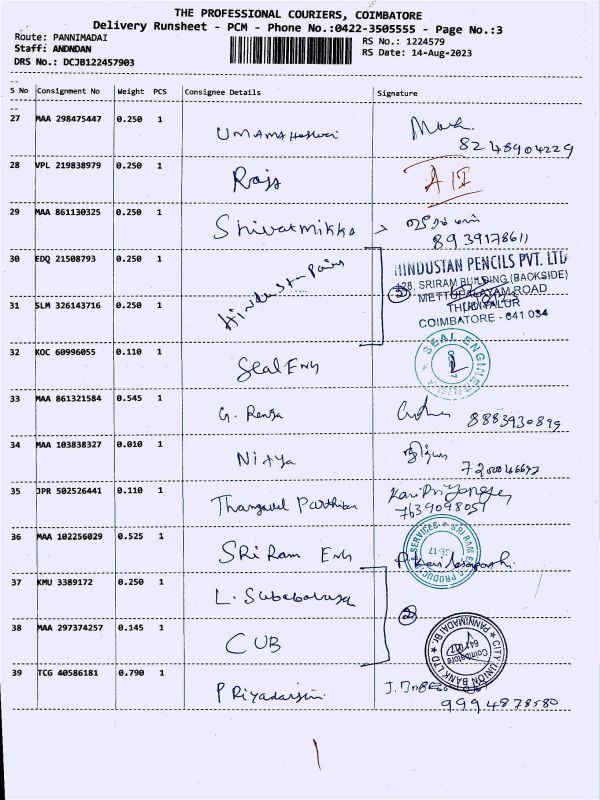 THE PROFESSIONAL COURIERS, COIMBATORE
Delivery Runsheet - PCM - Phone No.:0422-3505555 - Page No.:3
Route: PANNIMADAI
RS No.: 1224579
Staff: ANDNDAN
RS Date: 14-Aug-2023
DRS No.: DCJB122457903
S No Consignment No Weight PCS Consignee Details Signature
27 MAA 298475447 0.250 1
8248904229
28 VPL 219838979 0.250 1 Raja
29 MAA 861130325 0.250 1 Shivatmikka
8939178611
30 EDQ 21508793 0.250 1
HINDUSTAN PENCILS PVT. LTD
128, SRIRAM BUILDING (BACKSIDE)
METTUPALAYAM ROAD
THUDIYALUR
COIMBATORE - 641 034
31 SLM 326143716 0.250 1
②
32 KOC 60996055 0.110 1 Seal Eng
SEAL ENGINEERING
33 MAA 861321584 0.545 1 G. Renga
8883930899
34 MAA 103838327 0.010 1 Nitya
35 JPR 502526441 0.110 1 Thangavel Parthiban
7639098051
36 MAA 102256029 0.525 1 SRi Ram Eng
37 KMU 3389172 0.250 1
②
38 MAA 297374257 0.145 1 CUB
CITY UNION BANK LTD PANNIMADAI Br.
Coimbatore
39 TCG 40586181 0.790 1 PRiyadarsini
9994878580